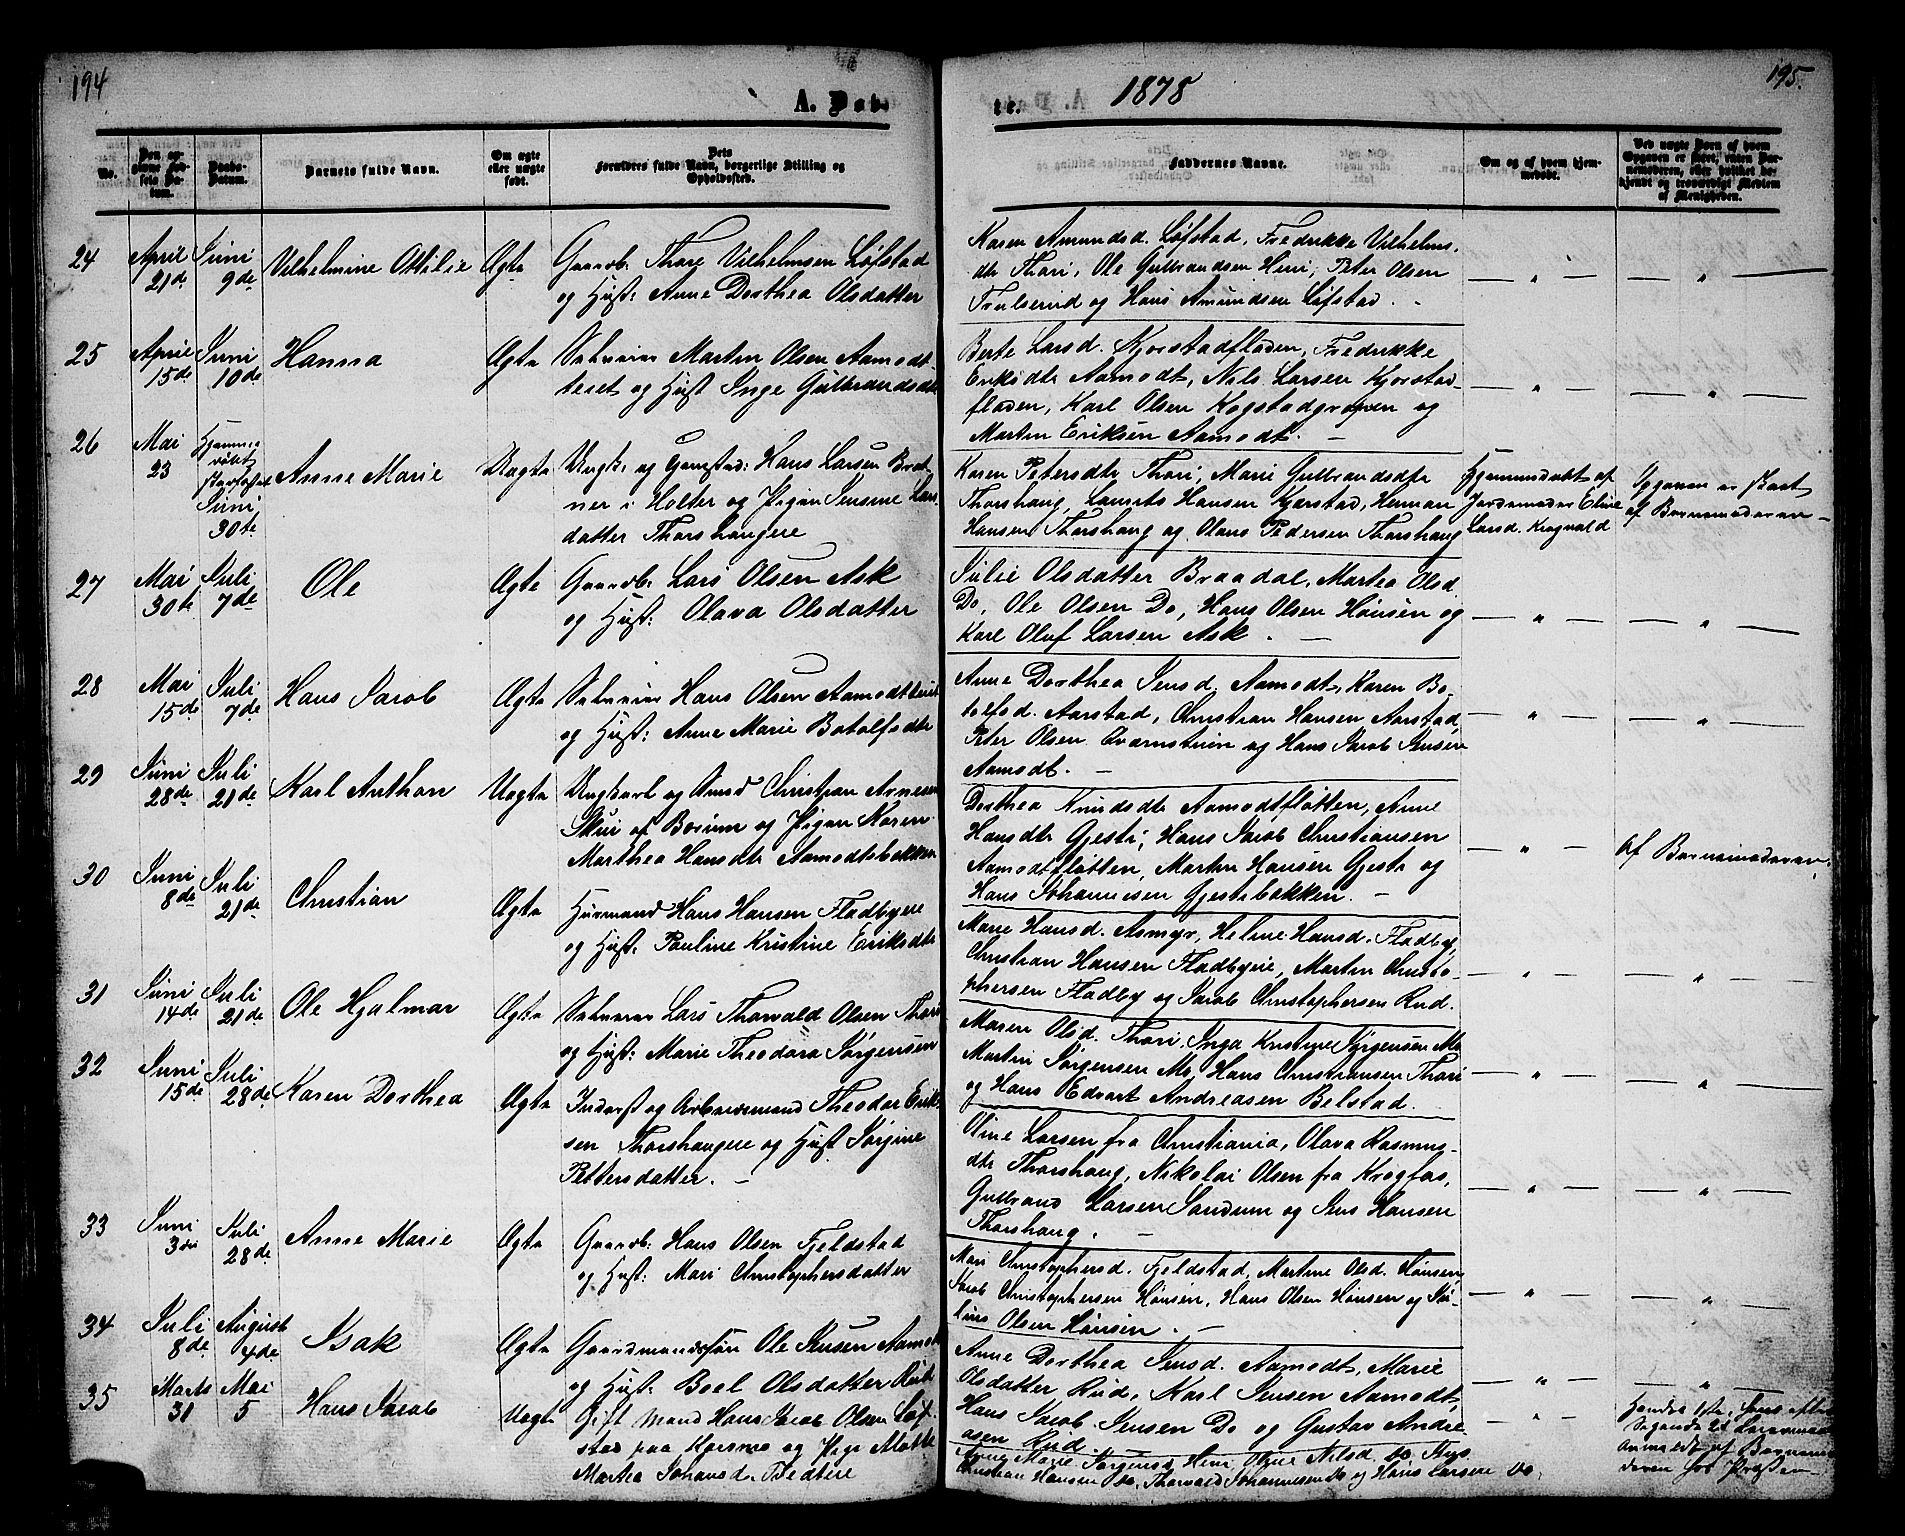 194
A. Døb-
No.
Den anførte Fødsels Datum.
Daabs-Datum.
Barnets fulde Navn.
Om ægte eller uægte født.
Dets Forældres fulde Navn, borgerlige Stilling og Opholdssted.
24
April 21de
Juni 9de
Vilhelmine Ottilie
Ægte
Gaardb. Thore Vilhelmsen Løfstad
og Hust: Anne Dorthea Olsdatter
25
April 15de
Juni 10de
Hanna
Ægte
Selveier Martin Olsen Aamodt-
teiet og Hust Inge Gulbrandsdt
26
Mai 23
Hjemmedøbt
Juni 30te
Anne Marie
Uægte
Ungk: og Gaardm: Hans Larsen Brat-
ner i Holter og Pigen Jensine Lars-
datter Thorshaugeie
27
Mai 30te
Juli 7de
Ole
Ægte
Gaardb: Lars Olsen Ask
og Hust: Olava Olsdatter
28
Mai 15de
Juli 7de
Hans Jacob
Ægte
Selveier Hans Olsen Aamodtteiet
og Hust: Anne Marie Botolfsdtr
29
Juni 28de
Juli 21de
Karl Anthon
Uægte
Ungkarl og Smed Christian Arnesen
Skui af Bærum og Pigen Karen
Marthea Hansdtr Aamodtsbakken
30
Juni 8de
Juli 21de
Christian
Ægte
Husmand Hans Hansen Fladbyeie
og Hust: Pauline Kristine Eriksdtr
31
Juni 14de
Juli 21de
Ole Hjalmar
Ægte
Selveier Lars Thorvald Olsen Thori
og Hust: Marie Theodora Jørgensen
32
Juni 15de
Juli 28de
Karen Dorthea
Ægte
Inderst og Arbeidsmand Theodor Erik-
sen Thorshaugeie og Hust Jørgine
Pettersdatter.
33
Juni 3die
Juli 28de
Anne Marie
Ægte
Gaardb: Hans Olsen Fjeldstad
og Hust: Mari Christophersdatter
34
Juli 8de
August 4de
Isak
Ægte
Gaardmandssøn Ole Jensen Aamodt
og Hust: Boel Olsdatter Rud
35
Marts 31
Mai 5
Hans Jacob
Uægte
Gift Mand Hans Jacob Olsen Løf-
stad paa Korsmo og Pige
Marthea Johansd.
1878
195.
te.
Faddernes Navne.
Om og af hvem hjemmedøbt.
Ved uægte Børn af hvem Opgaven er skeet, enten Barnemoderen, eller hvilket bekjendt og troværdigt Medlem af Menigheden.
Karen Amundsd. Løfstad, Fredrikke Vilhelms-
dtr Thori, Ole Gulbrandsen Heni, Peter Olsen
Trulserud og Hans Amundsen Løfstad.
Berte Larsd. Kjorstadfladen, Fredrikke
Eriksdtr Aamodt, Nils Larsen Kjorstad-
fladen, Karl Olsen Kogstadgraven og
Martin Eriksen Aamodt.
Karen Petersdtr Thori, Marie Gulbrandsdtr
Thorshaug, Laurits Hansen Kjorstad, Herman
Hansen Thorshaug og Olaus Pedersen Thorshaug
Hjemmedøbt af
Jordemoder Eline
Larsd. Krogvold
Opgaven er skeet
af Barnemoderen
Julie Olsdatter Braadal, Marthea Olsd.
Do, Ole Olsen Do, Hans Olsen Hønsen og
Karl Oluf Larsen Ask.
Anne Dorthea Jensd. Aamodt, Karen Bo-
tolfsd. Aarstad, Christian Hansen Aarstad,
Peter Olsen Qvernstuen og Hans Jacob Jensen
Aamodt.
Dorthea Knudsdtr Aamodtfløtten, Anne
Hansdtr Gjesti, Hans Jacob Christiansen
Aamodtfløtten, Martin Hansen Gjesti og
Hans Johannesen Gjestibakken.
Af Barnemoderen.
Marie Hansd. Asmyr, Heline Hansd. Fladby,
Christian Hansen Fladbyeie, Martin Christo-
phersen Fladby og Jacob Christophersen Rud.
Maren Olsd. Thori, Inga Kristine Jørgensen Mo
Martin Jørgensen Mo, Hans Christiansen Thori
og Hans Edvart Andreasen Belstad.
Oline Larsen fra Christiania, Olava Rasmus-
dtr Thorshaug, Nikolai Olsen fra Krogfos,
Gulbrand Larsen Sandum og Jens Hansen
Thorshaug.
Mari Christophersd. Fjeldstad, Martine Olsd. Hønsen
Jacob Christophersen Hønsen, Hans Olsen Hønsen og Ju-
lius Olsen Hønsen.
Anne Dorthea Jensd. Aamodt, Marie
Olsdatter Rud, Karl Jensen Aamodt,
Hans Jacob Jensen Do og Gustav Andre-
asen Rud.
Anne Marie Jørgensd. Heni, Oline Nilsd. Do,
Christian Hansen Do, Thorvald Johannesen Do og Hans Larsen Do.
Hendes 1ste, hans efter
Sigende 2d
anmeldt af Barnemo-
deren for Præsten